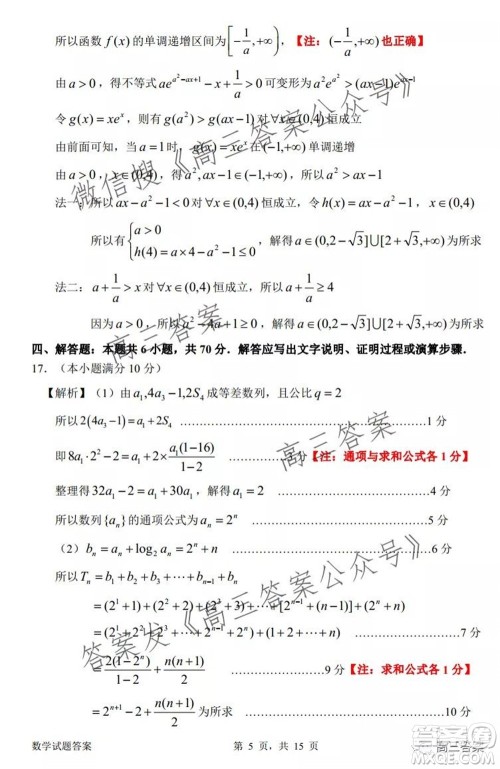 所以函数 f(x) 的单调递增区间为[-1/a,+∞)，【注：(-1/a,+∞)也正确】
由 a>0，得不等式 ae^{a²-ax+1} - x + 1/a > 0 可变形为 a²e^{a²} > (ax-1)e^{ax-1}
令 g(x)=xe^x，则有 g(a²)>g(ax-1) 对∀x∈(0,4) 恒成立
由前面可知，当 a=1 时，g(x)=xe^x 在 (-1,+∞) 单调递增
由 a>0，x∈(0,4)，所以 a²>0，ax-1∈(-1,+∞)，所以 a²>ax-1
法一：所以 ax-a²-1<0 对∀x∈(0,4) 恒成立，令 h(x)=ax-a²-1，x∈(0,4)
所以有{a>0 h(4)=a×4-a²-1≤0，解得 a∈(0,2-√3]∪[2+√3,+∞) 为所求
法二：a+1/a>x 对∀x∈(0,4) 恒成立，所以 a+1/a≥4
因为 a>0，解得 a∈(0,2-√3]∪[2+√3,+∞) 为所求
四、解答题：本题共 6 小题，共 70 分．解答应写出文字说明、证明过程或演算步骤．
17．（本小题满分 10 分）
【解析】（1）由 a₁,4a₃-1,2S₄ 成等差数列，且公比 q=2
所以 2(4a₃-1)=a₁+2S₄
即 8a₁·2²-2=a₁+2×a₁(1-16)/(1-2) ……3 分【注：通项与求和公式各 1 分】
整理得 32a₁-2=a₁+30a₁，解得 a₁=2 ……4 分
所以数列{aₙ}的通项公式为 aₙ=2ⁿ ……5 分
（2）bₙ=aₙ+log₂aₙ=2ⁿ+n
所以 Tₙ=b₁+b₂+b₃+⋯+bₙ₋₁+bₙ
=(2¹+1)+(2²+2)+(2³+3)+⋯+[2ⁿ⁻¹+(n-1)]+(2ⁿ+n)
=(2¹+2²+2³+⋯+2ⁿ)+(1+2+3+⋯+n) ……7 分
=2(1-2ⁿ)/(1-2)+n(n+1)/2 ……9 分【注：求和公式各 1 分】
=2ⁿ⁺¹-2+n(n+1)/2 为所求 ……10 分
数学试题答案 第 5 页，共 15 页 高三答案
微信搜《高三答案公众号》
高三答案
答案发布《高三答案公众号》